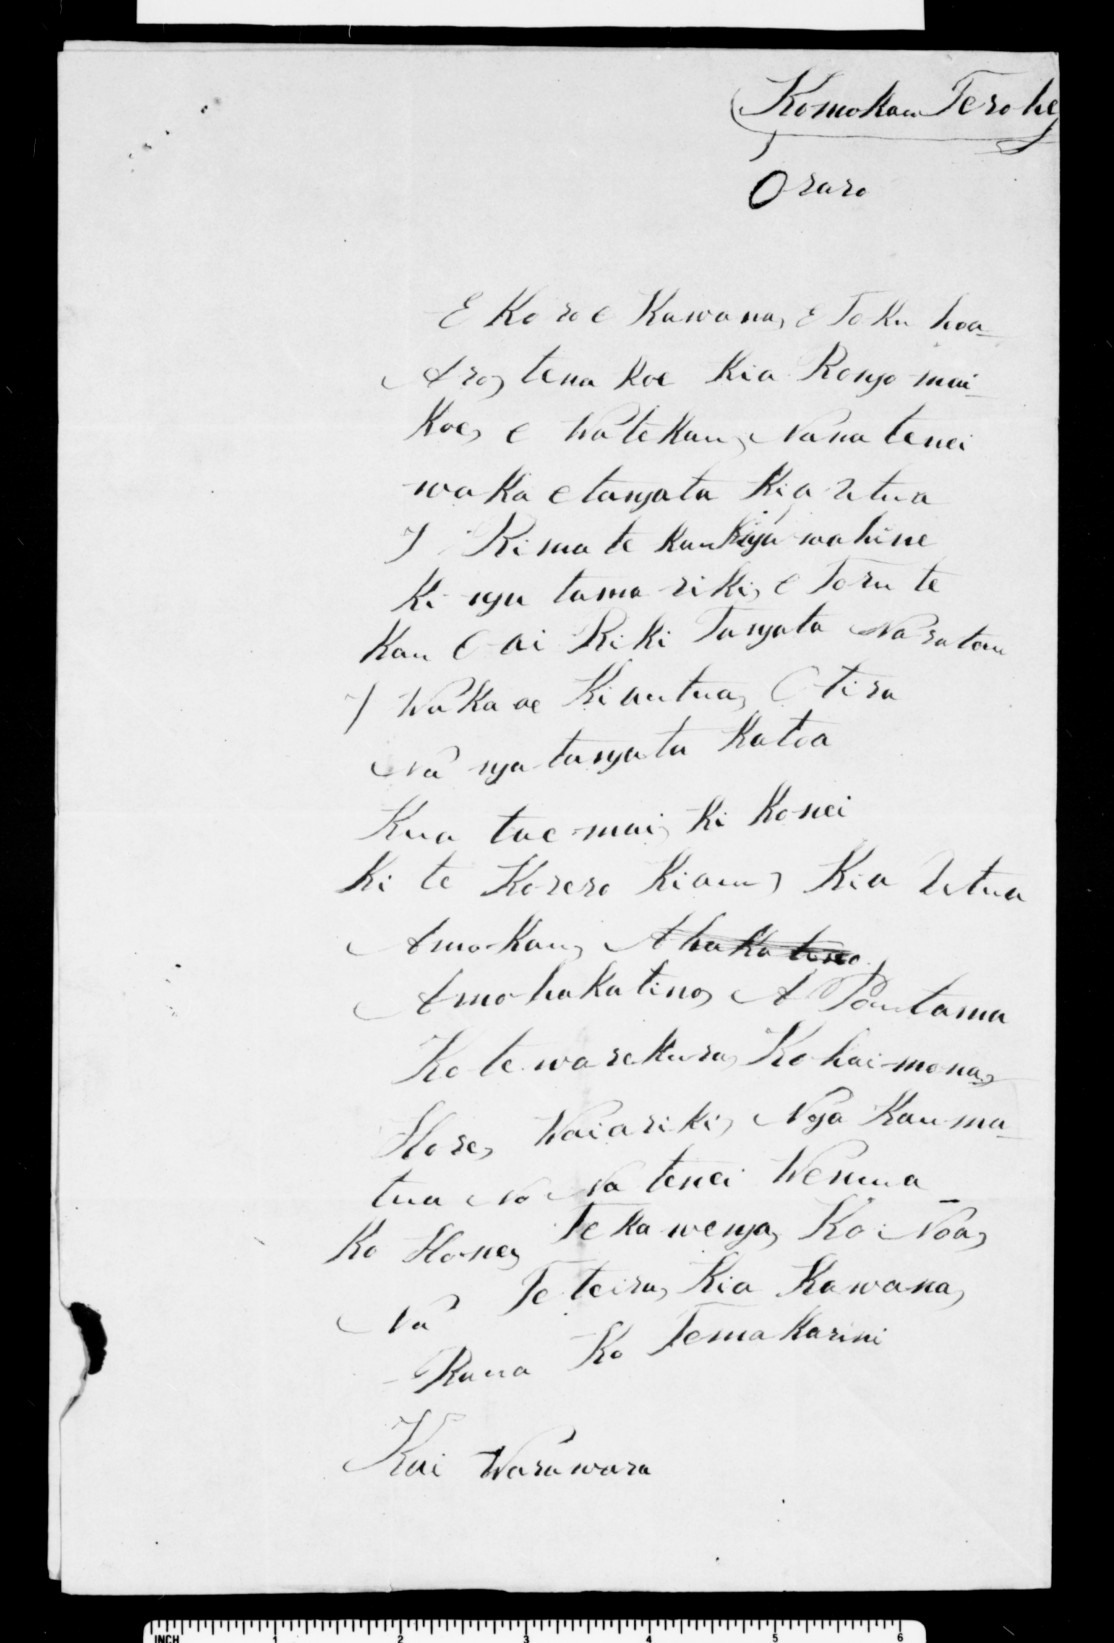 Komokau Terohe
Oraro
E Koro e Kawana, e Toku hoa-
Aro, tena koe Kia Rongo mai
Koe, e Wa te Kau, Nana tenei
waka e tangata Kia Utua
I Rima te kau kinga wahine
Ki nga tama riki, e Toru te
Kau e ai Riki Tangata Na ratou
I Waka ae Kiautua, Otira
Na nga tangata Katoa
Kua tae mai, ki Konei
Ki te Korero Kiau, Kia Utua
Amokau, Ahakatino
Amohakatino, A Poutama
Ko te warekura, Ko haimona,
Hore, Waiariki, Nga Kau ma-
tua No Na tenei Wenua
Ko Hone, Te Kawenga, Ko Noa,
Na Te teira, Kia Kawana,
Raua Ko Temakarini
Kai Warawara
INCH 1 2 3 4 5 6